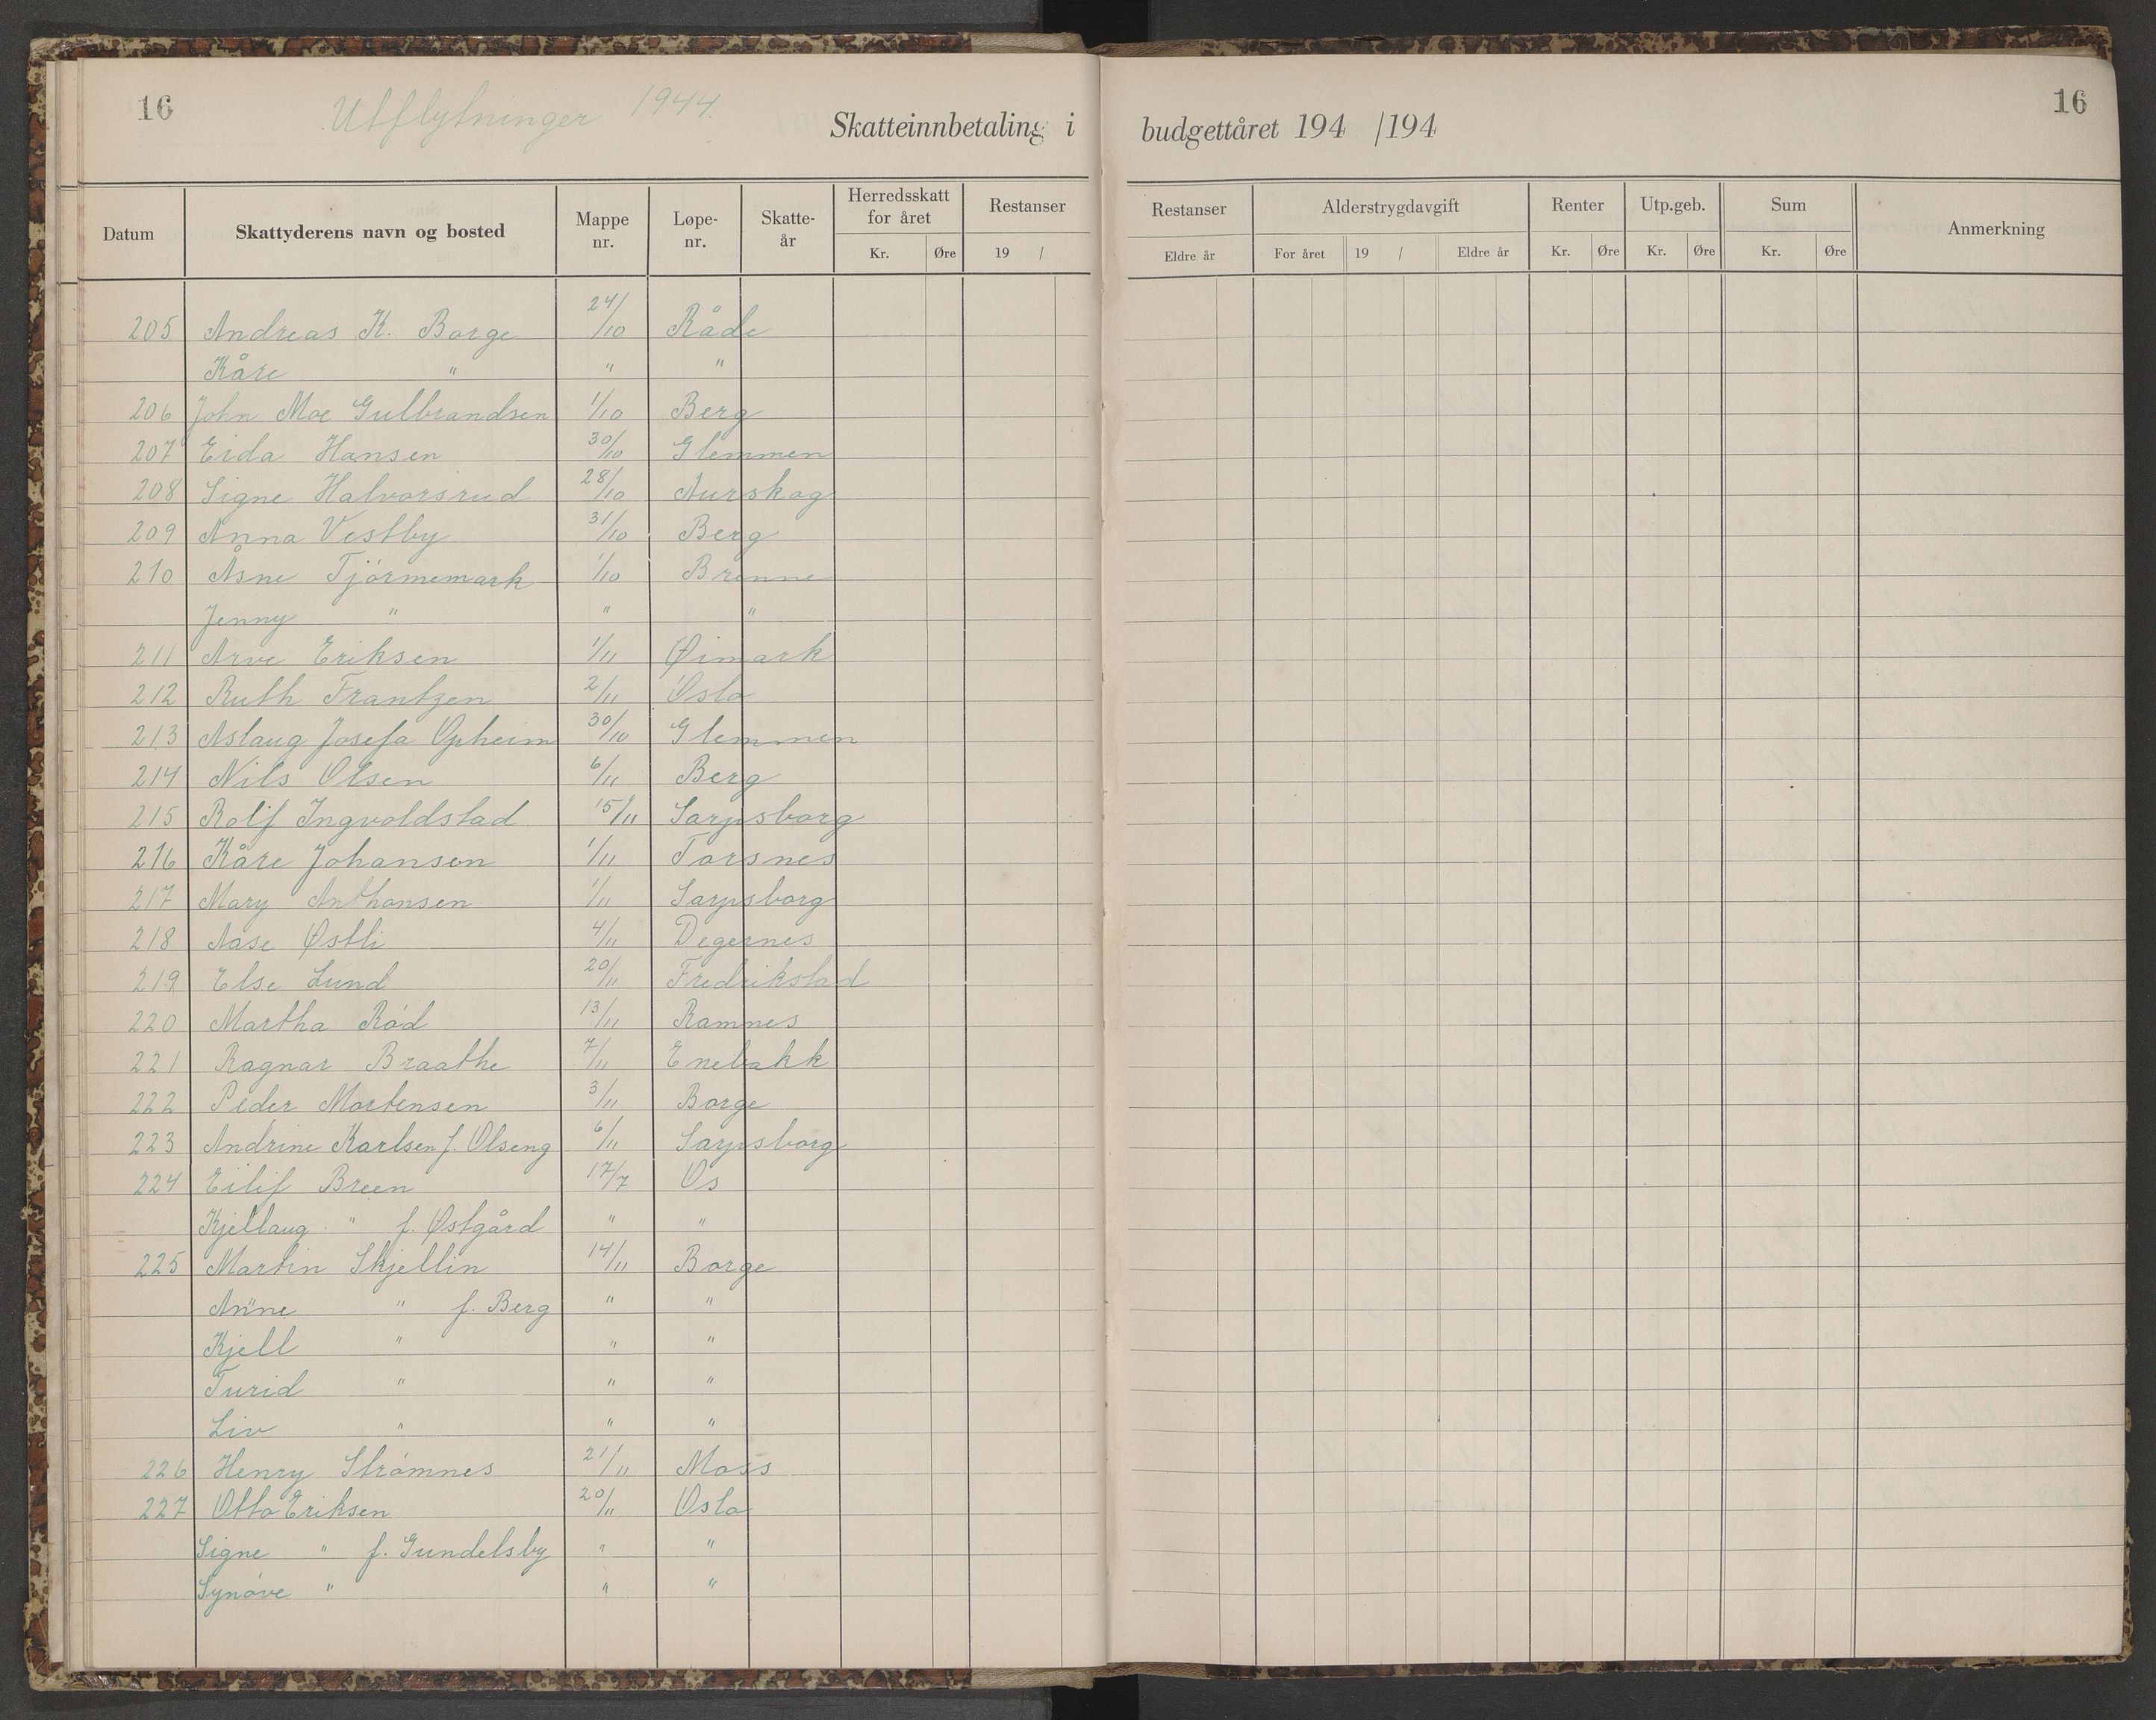 16
Utflytninger 1944.
Skatteinnbetaling i budgettåret 194 /194
16
Datum Skattyderens navn og bosted Mappe nr. Løpe- nr. Skatte- år Herredsskatt for året Kr. Øre Restanser 19 / Restanser Eldre år Alderstrygdavgift For året 19 / Eldre år Renter Kr. Øre Utp.geb. Kr. Øre Sum Kr. Øre Anmerkning
205 Andreas K. Borge 24/10 Råde
Kåre " " "
206 John Moe Gulbrandsen 1/10 Berg
207 Eida Hansen 30/10 Glemmen
208 Signe Halvorsrud 28/10 Aurskog
209 Anna Vestby 31/10 Berg
210 Åsne Tjörnemark 1/10 Brenne
Jenny " " "
211 Arve Eriksen 1/11 Øimark
212 Ruth Frantzen 2/11 Oslo
213 Aslaug Josefa Opheim 30/10 Glemmen
214 Nils Olsen 6/11 Berg
215 Rolf Ingvoldstad 15/11 Sarpsborg
216 Kåre Johansen 1/11 Torsnes
217 Mary Anthonsen 1/11 Sarpsborg
218 Aase Østli 4/11 Degernes
219 Else Lund 20/11 Fredrikstad
220 Martha Röd 13/11 Ramnes
221 Ragnar Braathe 7/11 Enebakk
222 Peder Mortensen 3/11 Borge
223 Andrine Karlsen f. Olseng 6/11 Sarpsborg
224 Eilif Breen 17/7 Os
Kjellaug " f. Østgård " "
225 Martin Skjellin 14/11 Borge
Anne " f. Berg " "
Kjell " " "
Turid " " "
Liv " " "
226 Henry Strömnes 21/11 Moss
227 Otto Eriksen 20/11 Oslo
Signe " f. Gundelsby " "
Synöve " " "